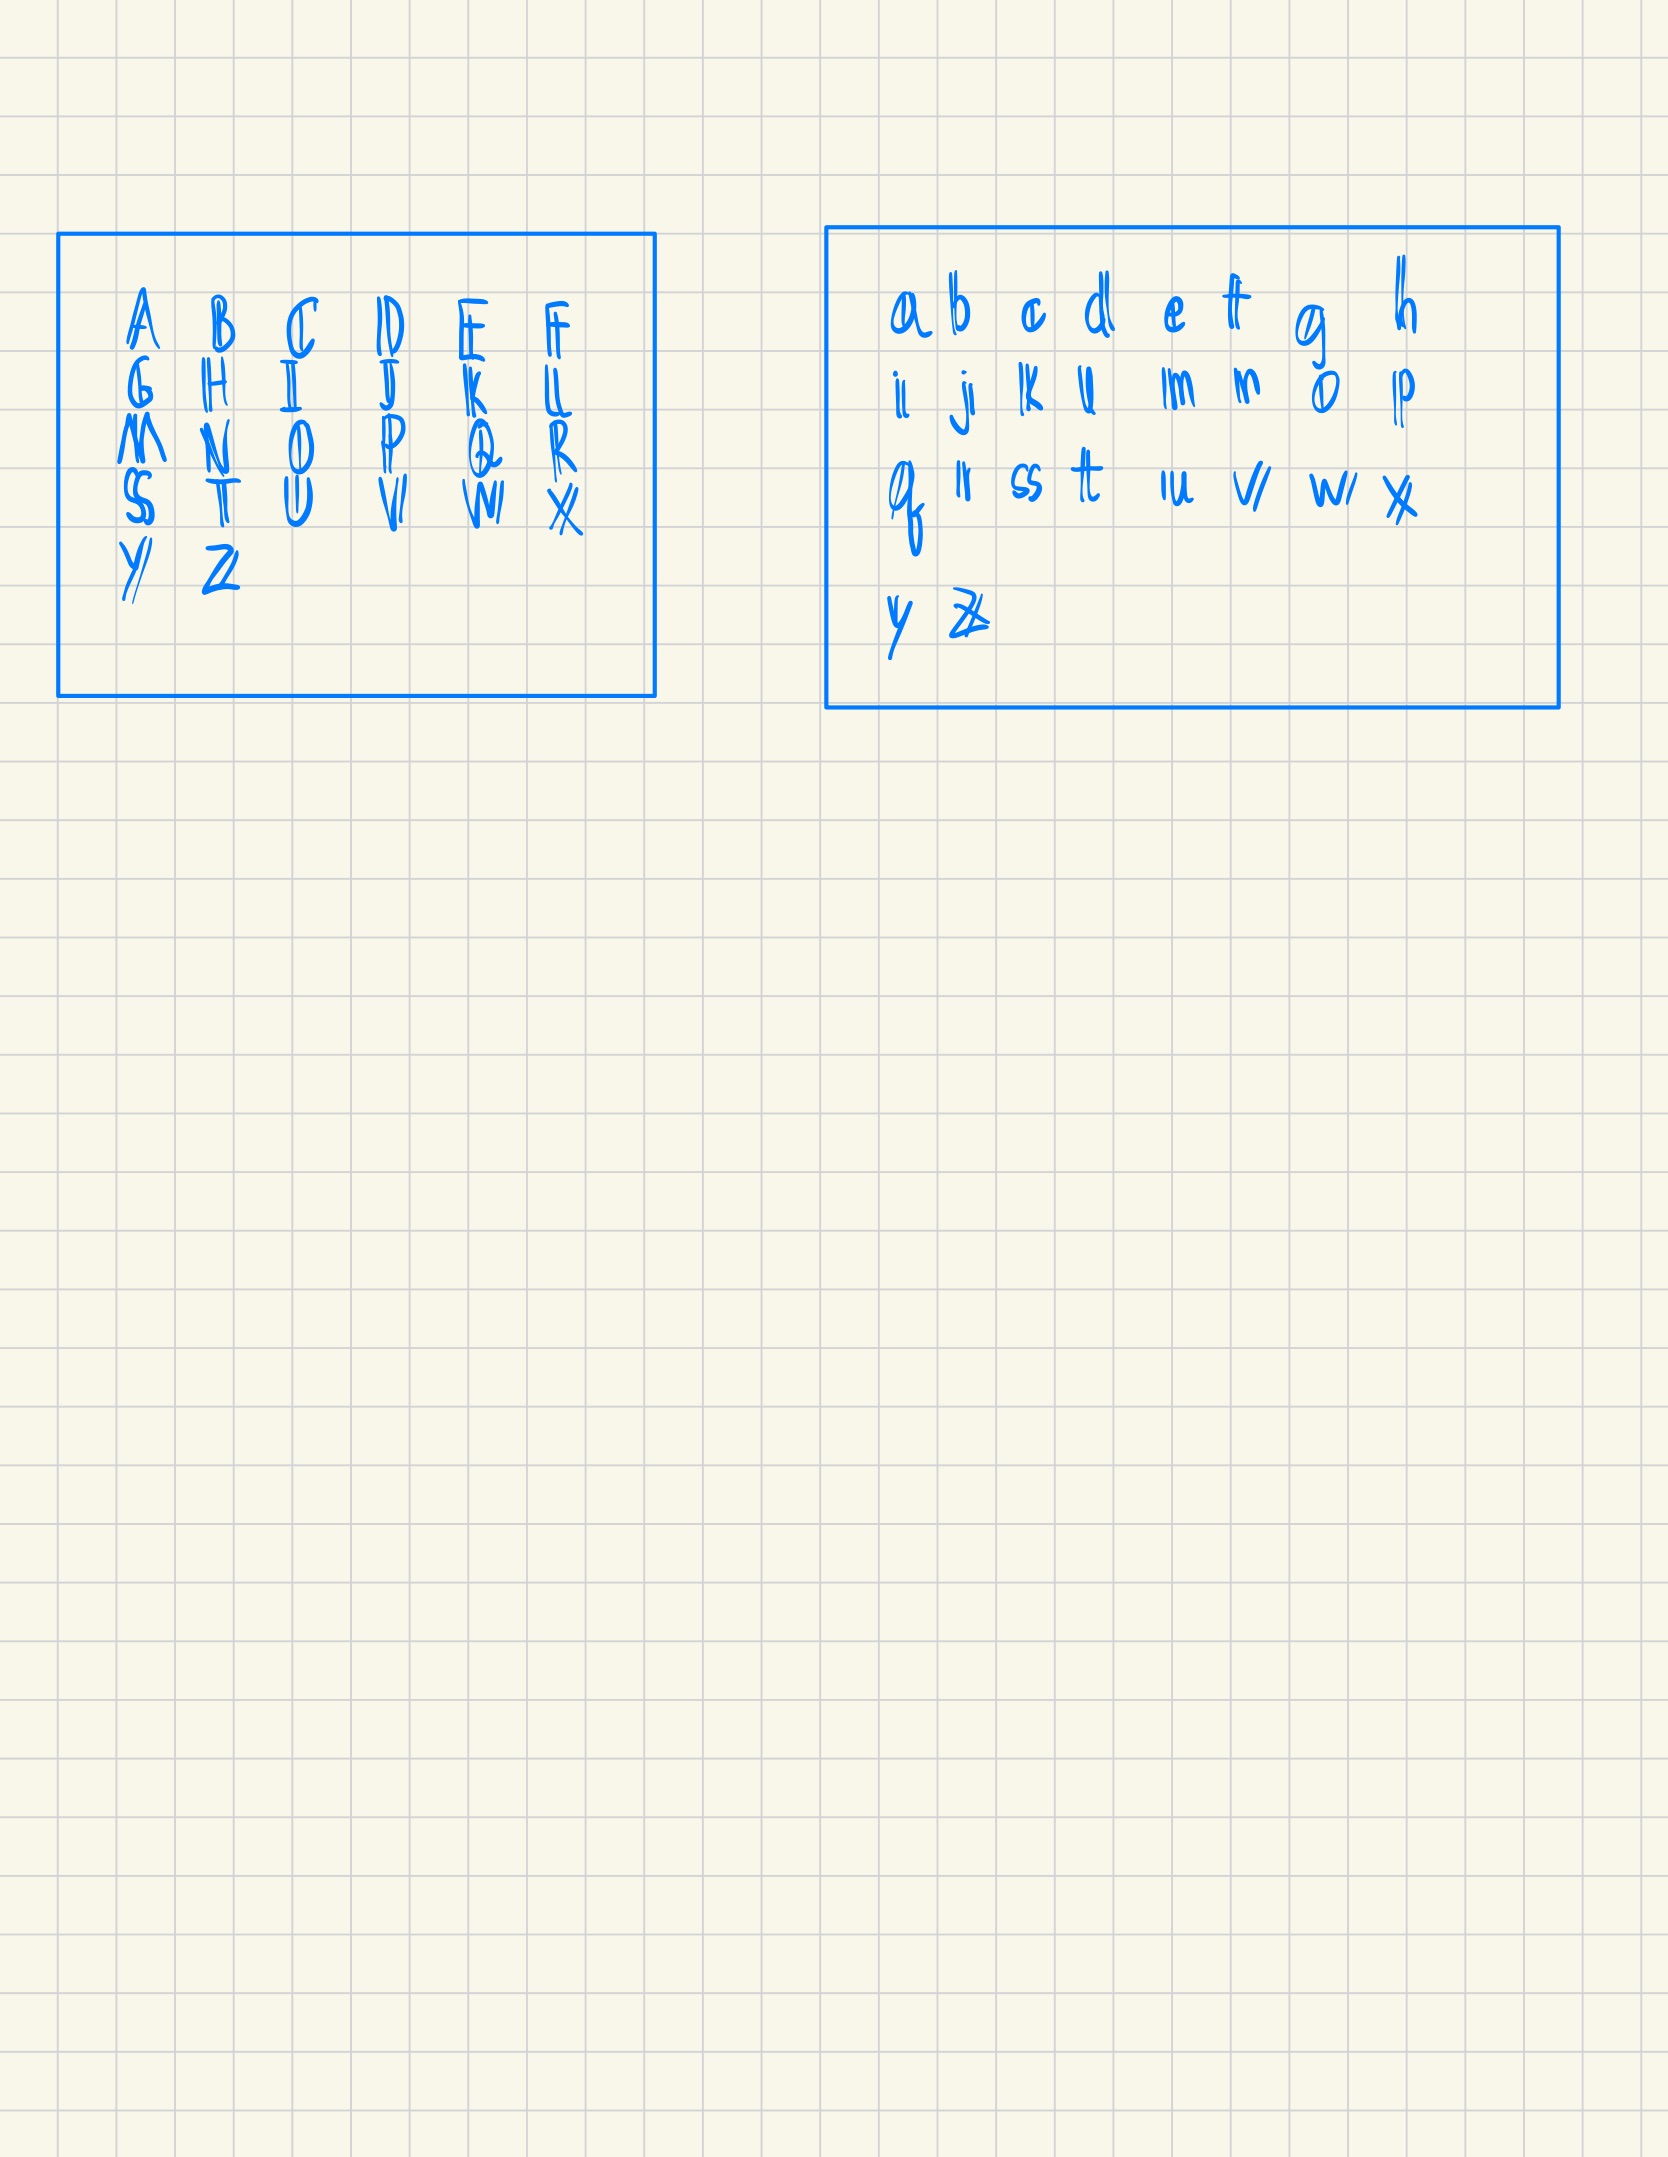 A B C D E F
G H I J K L
M N O P Q R
S T U V W X
Y Z
a b c d e f g h
i j k l m n o p
q r s t u v w x
y z